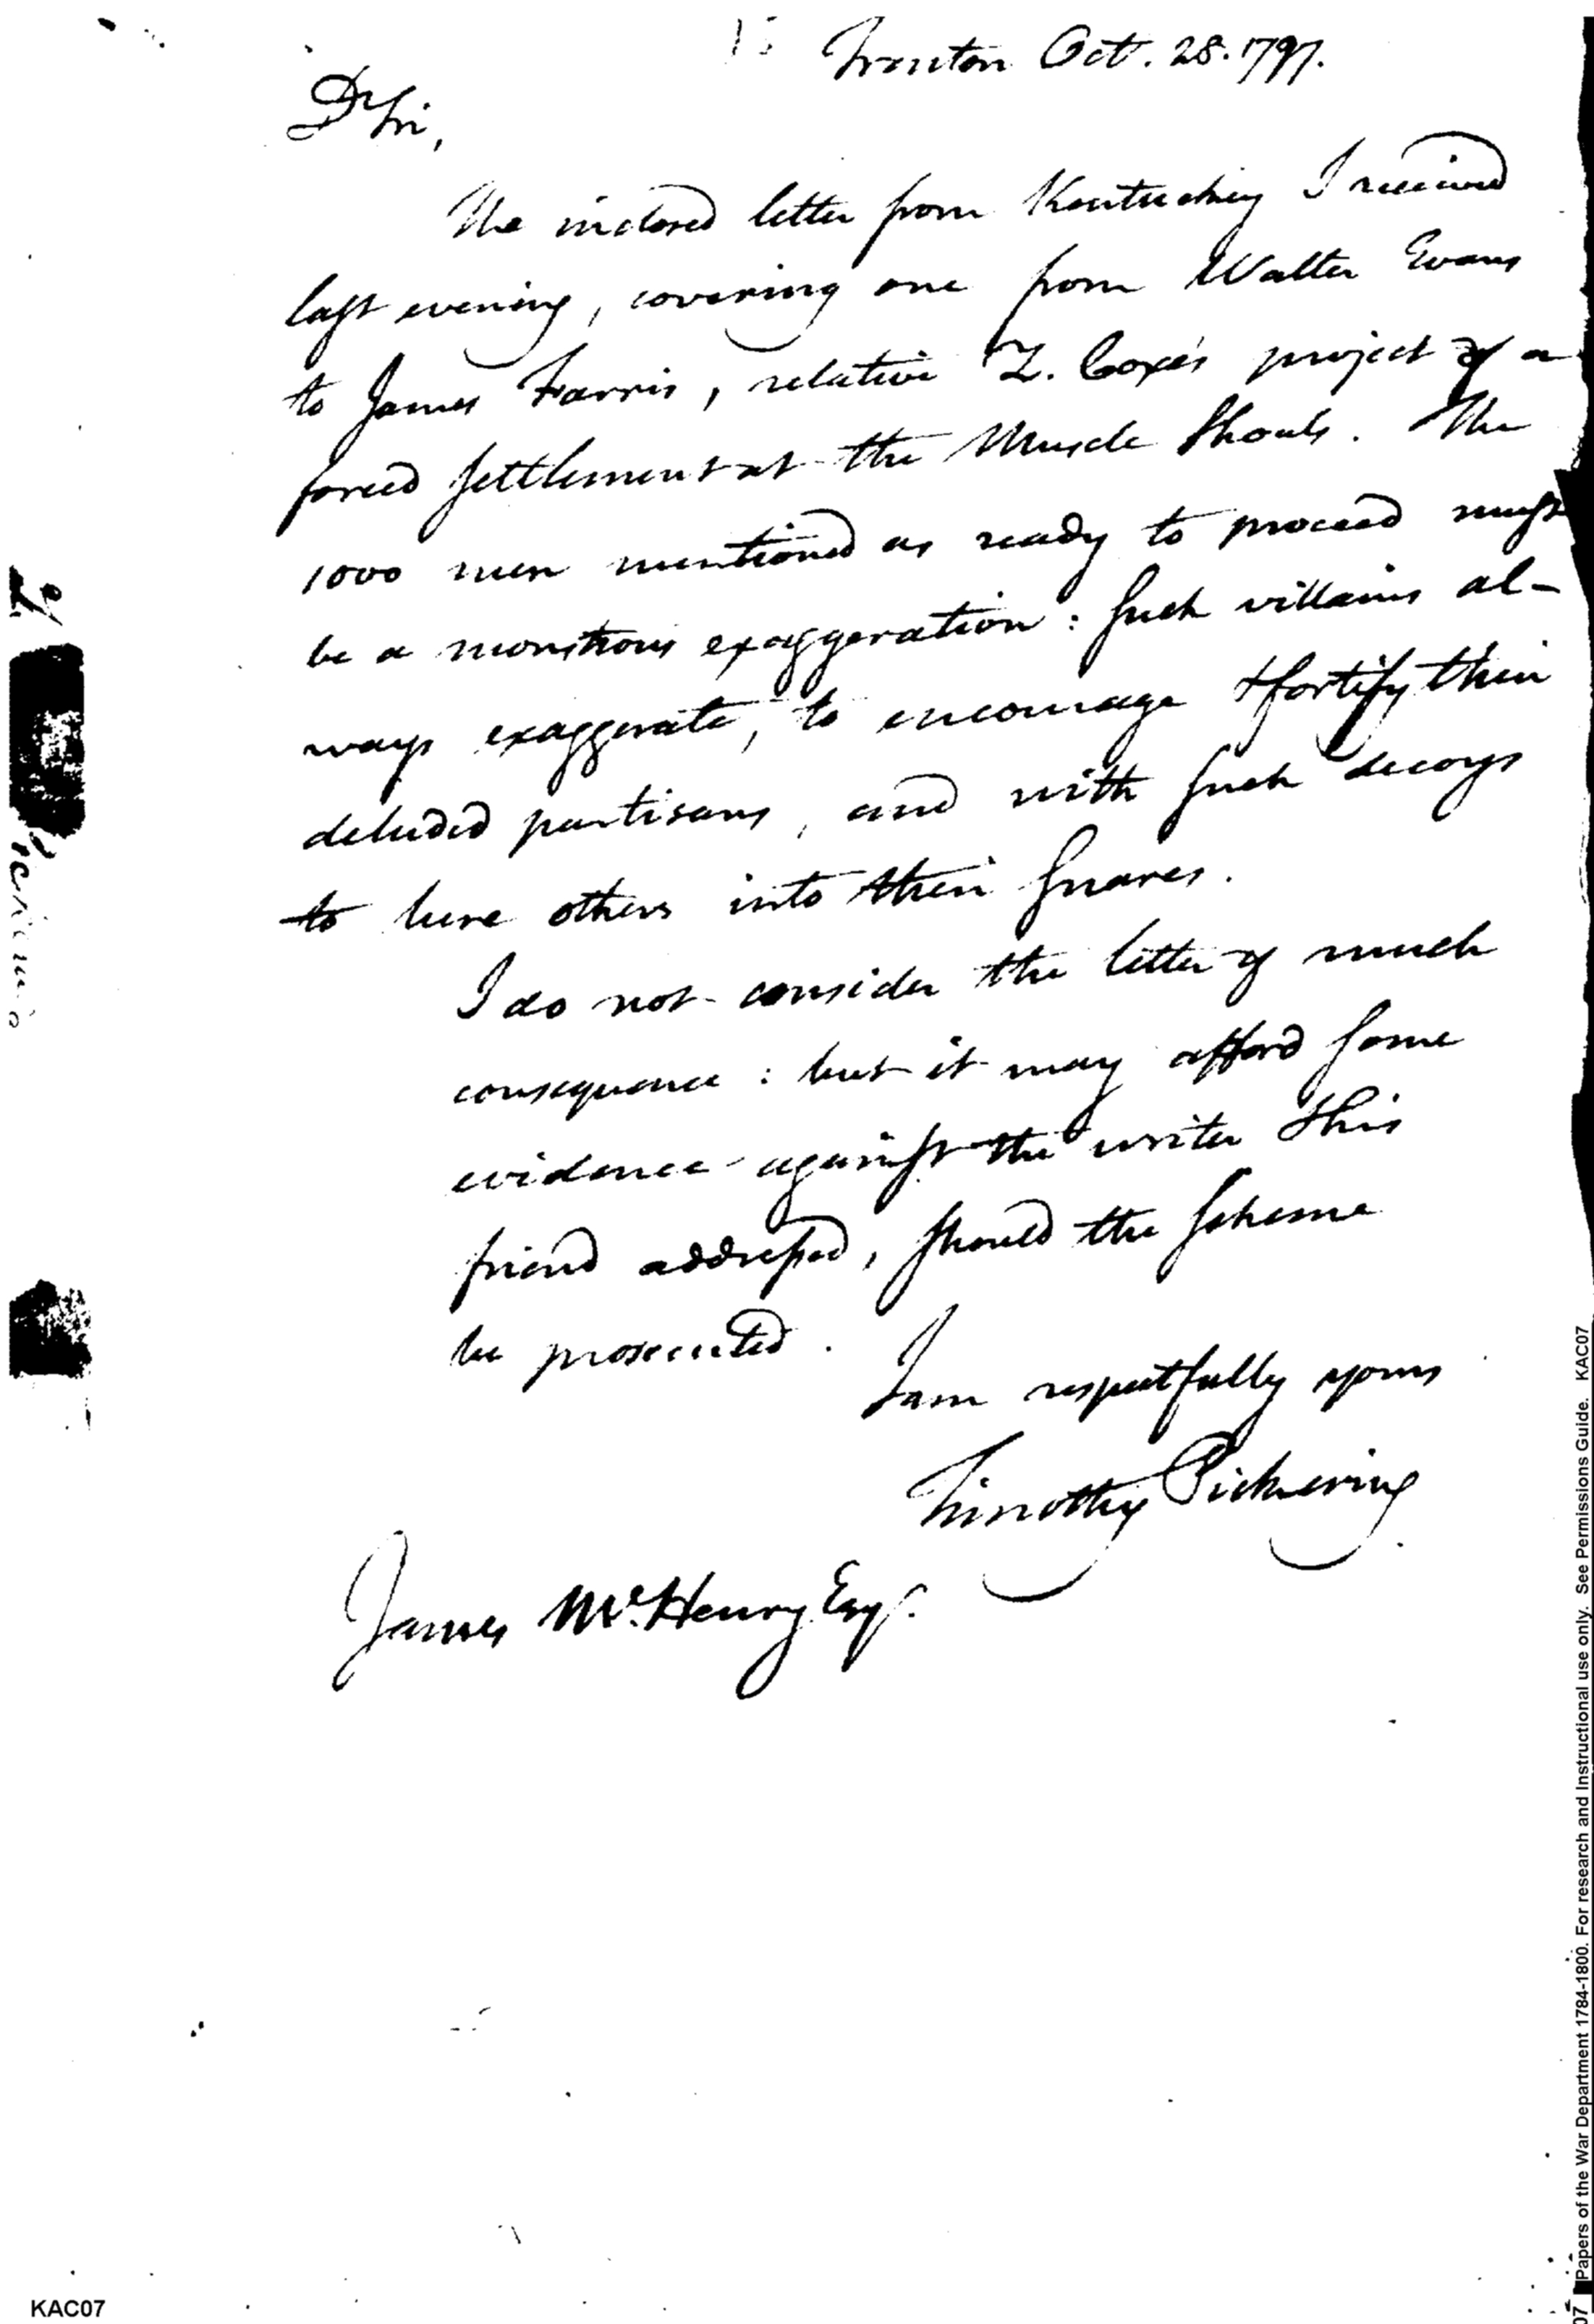 Trenton Oct. 28. 1797.
Dr Sir,
The inclosed letter from Kentuckey I received
last evening, covering one from Walter Evans
to James Farris, relative Z. Coxe's project of a
forced settlement at the Muscle Shoals. The
1000 men mentioned as ready to proceed must
be a monstrous exaggeration: such villains al-
ways exaggerate, to encourage & fortify their
deluded partisans, and with such decoys
to lure others into their snares.
I do not consider the letter of much
consequence: but it may afford some
evidence against the writer & his
friend addressed, should the scheme
be prosecuted.
I am respectfully yours
Timothy Pickering
James McHenry Esqr.
KAC07
Papers of the War Department 1784-1800. For research and Instructional use only. See Permissions Guide. KAC07
07